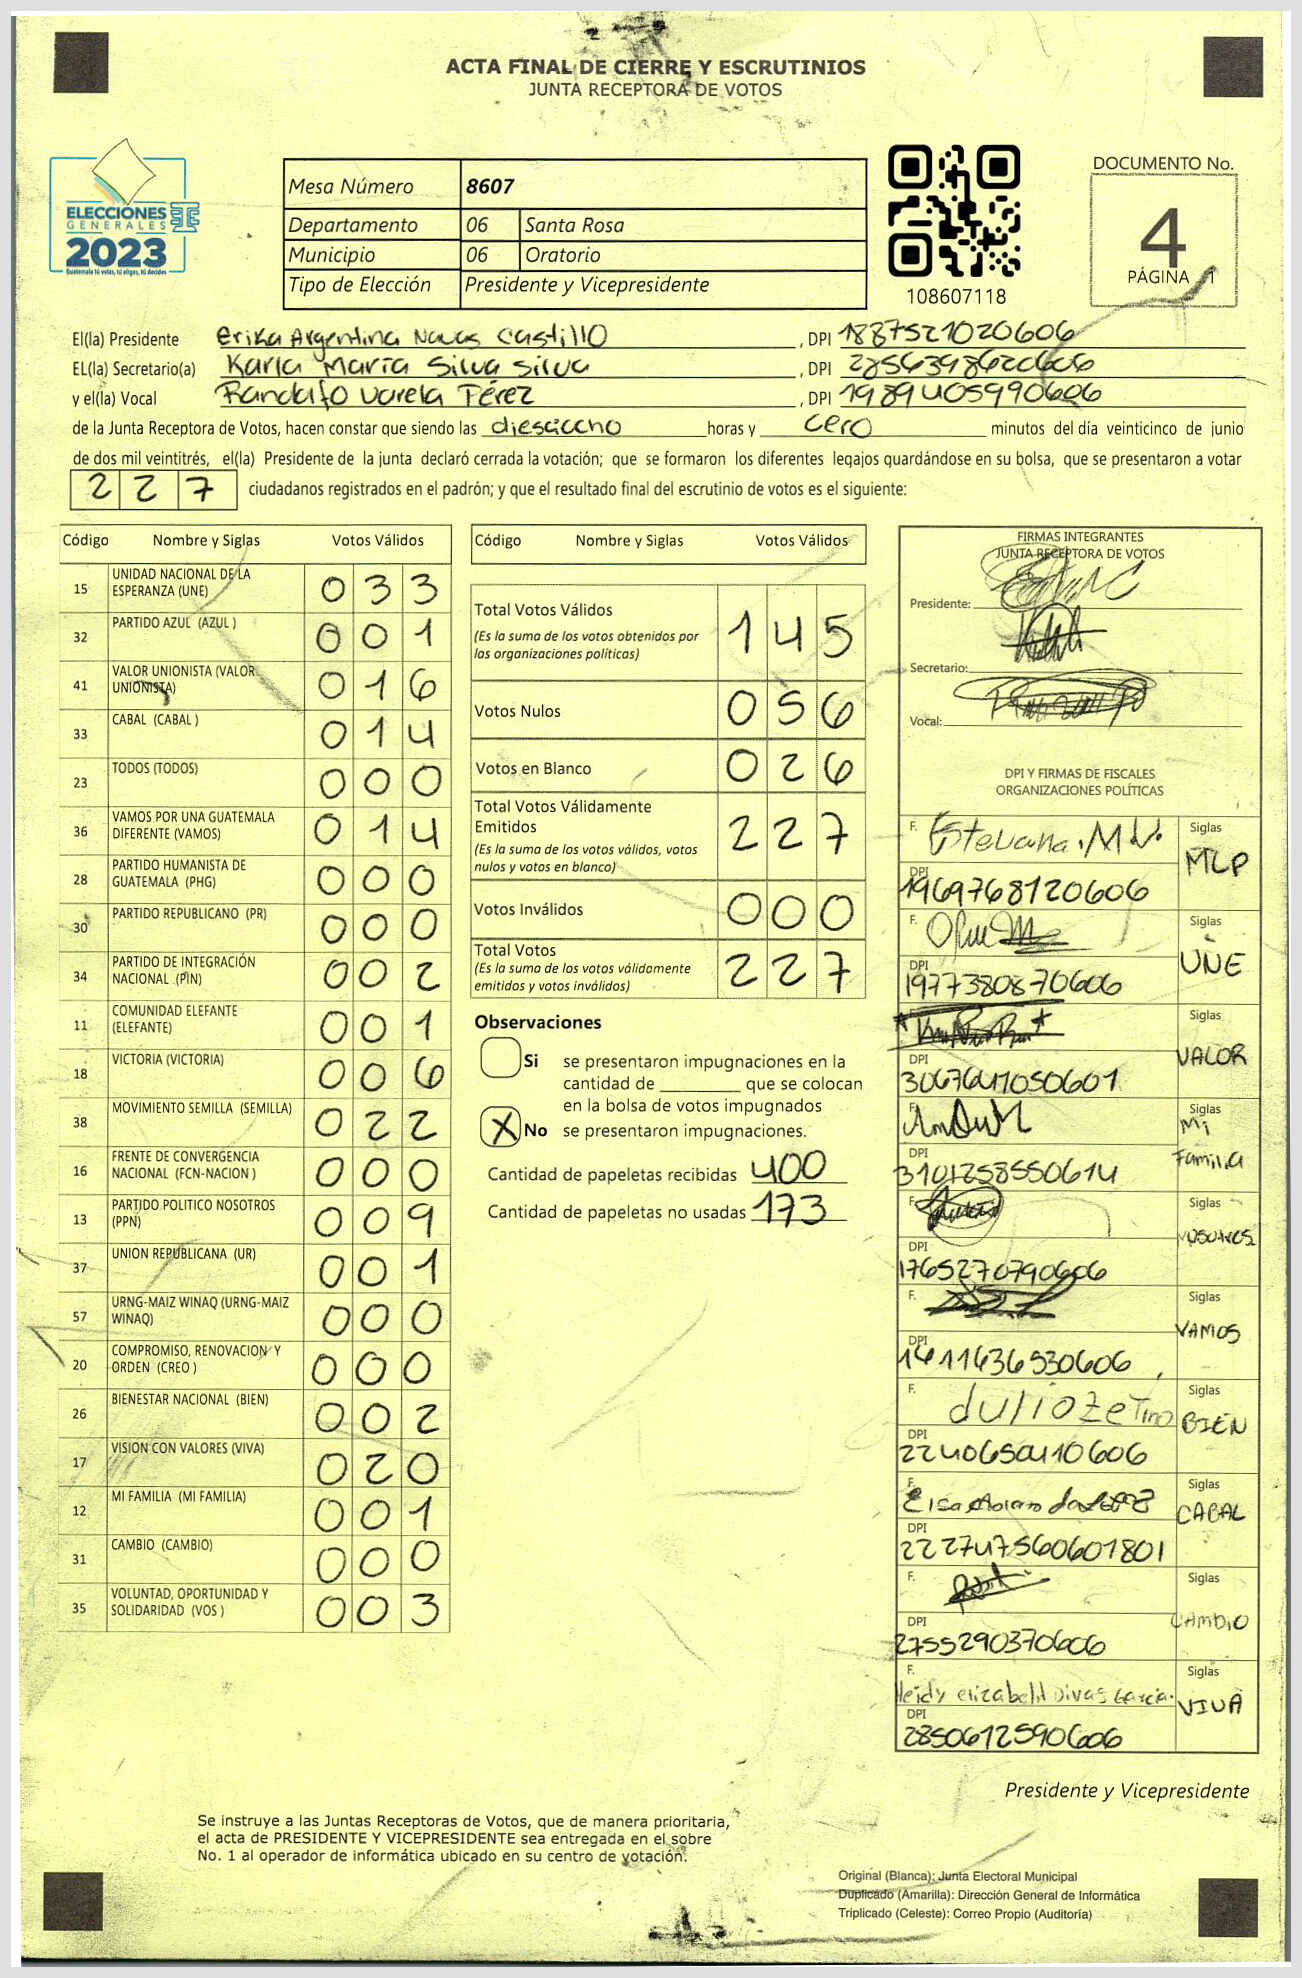 ACTA FINAL DE CIERRE Y ESCRUTINIOS
JUNTA RECEPTORA DE VOTOS
ELECCIONES
GENERALES
2023
Guatemala tú votas, tú eliges, tú decides
Mesa Número 8607
Departamento 06 Santa Rosa
Municipio 06 Oratorio
Tipo de Elección Presidente y Vicepresidente
108607118
DOCUMENTO No.
4
PÁGINA 1
El(la) Presidente Erika Argentina Navas Castillo, DPI 1887521020606
EL(la) Secretario(a) Karla María Silva Silva, DPI 2856398620606
y el(la) Vocal Randolfo Varela Pérez, DPI 1989405990606
de la Junta Receptora de Votos, hacen constar que siendo las diesiocho horas y cero minutos del día veinticinco de junio
de dos mil veintitrés, el(la) Presidente de la junta declaró cerrada la votación; que se formaron los diferentes legajos quardándose en su bolsa, que se presentaron a votar
227 ciudadanos registrados en el padrón; y que el resultado final del escrutinio de votos es el siguiente:
Código Nombre y Siglas Votos Válidos
15 UNIDAD NACIONAL DE LA ESPERANZA (UNE) 033
32 PARTIDO AZUL (AZUL ) 001
41 VALOR UNIONISTA (VALOR UNIONISTA) 016
33 CABAL (CABAL ) 014
23 TODOS (TODOS) 000
36 VAMOS POR UNA GUATEMALA DIFERENTE (VAMOS) 014
28 PARTIDO HUMANISTA DE GUATEMALA (PHG) 000
30 PARTIDO REPUBLICANO (PR) 000
34 PARTIDO DE INTEGRACIÓN NACIONAL (PIN) 002
11 COMUNIDAD ELEFANTE (ELEFANTE) 001
18 VICTORIA (VICTORIA) 006
38 MOVIMIENTO SEMILLA (SEMILLA) 022
16 FRENTE DE CONVERGENCIA NACIONAL (FCN-NACION ) 000
13 PARTIDO POLITICO NOSOTROS (PPN) 009
37 UNION REPUBLICANA (UR) 001
57 URNG-MAIZ WINAQ (URNG-MAIZ WINAQ) 000
20 COMPROMISO, RENOVACION Y ORDEN (CREO ) 000
26 BIENESTAR NACIONAL (BIEN) 002
17 VISION CON VALORES (VIVA) 020
12 MI FAMILIA (MI FAMILIA) 001
31 CAMBIO (CAMBIO) 000
35 VOLUNTAD, OPORTUNIDAD Y SOLIDARIDAD (VOS ) 003
Código Nombre y Siglas Votos Válidos
Total Votos Válidos 145
(Es la suma de los votos obtenidos por
las organizaciones políticas)
Votos Nulos 056
Votos en Blanco 026
Total Votos Válidamente
Emitidos 227
(Es la suma de los votos válidos, votos
nulos y votos en blanco)
Votos Inválidos 000
Total Votos 227
(Es la suma de los votos válidamente
emitidos y votos inválidos)
Observaciones
Si se presentaron impugnaciones en la
cantidad de ________ que se colocan
en la bolsa de votos impugnados
X No se presentaron impugnaciones.
Cantidad de papeletas recibidas 400
Cantidad de papeletas no usadas 173
FIRMAS INTEGRANTES
JUNTA RECEPTORA DE VOTOS
Presidente:
Secretario:
Vocal:
DPI Y FIRMAS DE FISCALES
ORGANIZACIONES POLÍTICAS
F. Estebana. M. V. Siglas MLP
DPI 1969768120606
F. Siglas UNE
DPI 1977380870606
F. Siglas VALOR
DPI 3067641050601
F. Siglas Mi Familia
DPI 3101258550614
F. Siglas
DPI 1765270790606
F. Siglas VAMOS
DPI 1411636530606
F. Julio Zetino Siglas BIEN
DPI 2240650410606
F. Siglas CABAL
DPI 222747560601801
F. Siglas CAMBIO
DPI 2755290370606
F. Heidy elizabeth Divas Garcia. Siglas VIVA
DPI 2850612590606
Presidente y Vicepresidente
Se instruye a las Juntas Receptoras de Votos, que de manera prioritaria,
el acta de PRESIDENTE Y VICEPRESIDENTE sea entregada en el sobre
No. 1 al operador de informática ubicado en su centro de votación.
Original (Blanca): Junta Electoral Municipal
Duplicado (Amarilla): Dirección General de Informática
Triplicado (Celeste): Correo Propio (Auditoría)